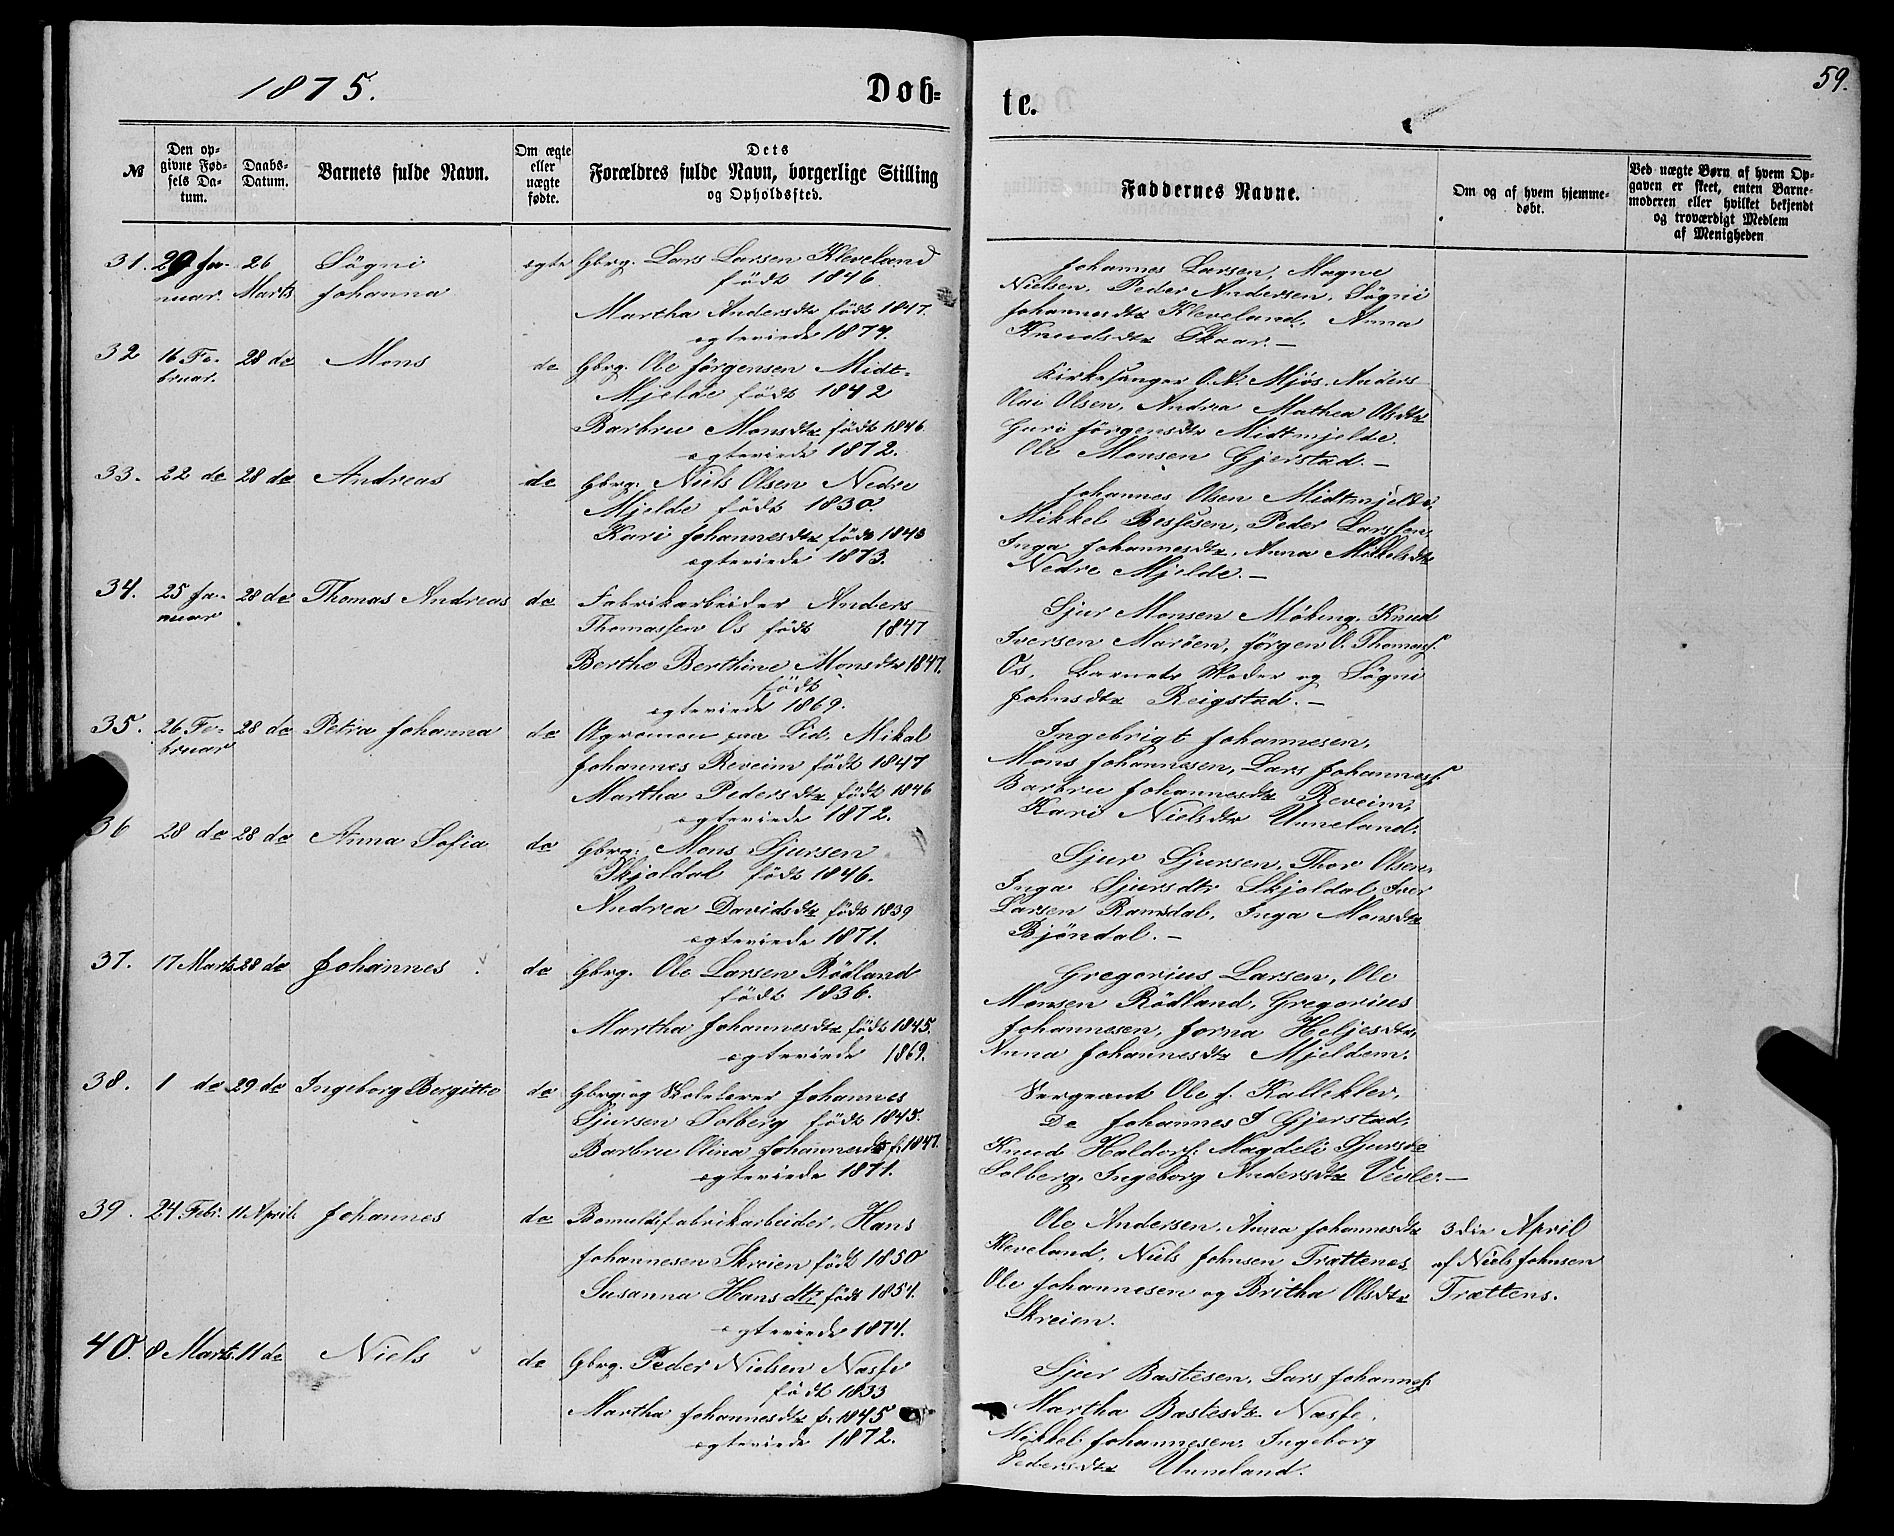 1875.
Døb=
te.
59.
№
Den op-
givne Fød-
sels Da-
tum.
Daabs-
Datum.
Barnets fulde Navn.
Om ægte
eller
uægte
fødte.
Dets
Forældres fulde Navn, borgerlige Stilling
og Opholdssted.
Faddernes Navne.
Om og af hvem hjemme-
døbt.
Ved uægte Børn af hvem Op-
gaven er skeet, enten Barne-
moderen eller hvilket bekjendt
og troværdigt Medlem
af Menigheden
31. 29 Ja-
nuar. 26
Marts Sögni
Johanna ægte Gbrg. Lars Larsen Kleveland
født 1846.
Martha Andersdtr født 1847.
egteviede 1874.
Johannes Larsen, Magne
Nielsen, Peder Andersen, Sögni
Johannesdtr Kleveland, Anna
Knudsdtr Skaar. —
32 16 Fe-
bruar. 28 do Mons do Gbrg. Ole Jørgensen Midt-
Mjelde født 1842
Barbru Monsdtr født 1846
egteviede 1872.
Kirkesanger O. N. Mjøs. Anders
Olai Olsen, Andrea Mathea Olsdtr
Guri Jörgensdtr Midtmjelde.
Ole Monsen Gjerstad. —
33. 22 do 28 do Andreas do Gbrg. Niels Olsen Nedre
Mjelde født 1830.
Kari Johannesdtr født 1843
egteviede 1873.
Johannes Olsen Midtmjelde.
Mikkel Bessesen, Peder Larssen
Inga Johannesdtr, Anna Mikkelsdtr
Nedre Mjelde. —
34. 25 Ja-
nuar 28 do Thomas Andreas do Fabrikarbeider Anders
Thomassen Os født 1847
Berthe Berthine Monsdtr 1847.
født
egteviede 1869.
Sjur Monsen Møking, Knud
Iversen Marøen, Jørgen O. Thomass.
Os, Barnets Moder og Sögni
Johnsdtr Reigstad. —
35. 26 Fe-
bruar 28 do Petra Johanna do Agronom paa Lid. Mikal
Johannes Reveim født 1847
Martha Pedersdtr født 1846
egteviede 1872.
Ingebrigt Johannesen,
Mons Johannesen, Lars Johanness.
Barbru Johannesdtr Reveim,
Kari Nielsdtr Unneland.
36 28 do 28 do Anna Sofia do Gbrg. Mons Sjursen
Skjoldal født 1846.
Andrea Davidsdtr født 1839
egteviede 1871.
Sjur Sjursen, Thor Olsen
Inga Sjursdtr Skjoldal, Iver
Larsen Ramsdal, Inga Monsdtr
Bjöndal. —
37. 17 Marts 28 do Johannes do Gbrg. Ole Larsen Rödland
født 1836.
Martha Johannesdtr født 1845.
egteviede 1869.
Gregorius Larsen, Ole
Monsen Rödland, Gregorius
Johannesen, Jorna Heljesdtr,
Anna Johannesdtr Mjeldem.
38. 1 do 29 do Ingeborg Bergitte do Gbrg. og Skolelærer Johannes
Sjursen Solberg født 1845.
Barbru Olina Johannesdtr f. 1847.
egteviede 1871.
Sergeant Ole J. Kallekler,
Do Johannes J Gjerstad,
Knud Haldors. Magdeli Sjursdtr
Solberg, Ingeborg Andersdtr Vevle. —
39. 24 Febr. 11 April. Johannes do Bomuldsfabrikarbeider, Hans
Johannesen Skreien født 1850
Susanna Hansdtr født 1854.
egteviede 1874.
Ole Andersen, Anna Johannesdtr
Kleveland, Niels Johnsen Trættenes
Ole Johannesen og Britha Olsdtr
Skreien.
3die April
af Niels Johnsen
Trættens.
40. 8 Marts. 11 do Niels do Gbrg. Peder Nielsen Næsse
født 1833
Martha Johannesdtr f. 1845
egteviede 1872.
Sjur Bastesen, Lars Johanness.
Martha Bastesdtr Næsse,
Mikkel Johannesen, Ingeborg
Pedersdtr Unneland.